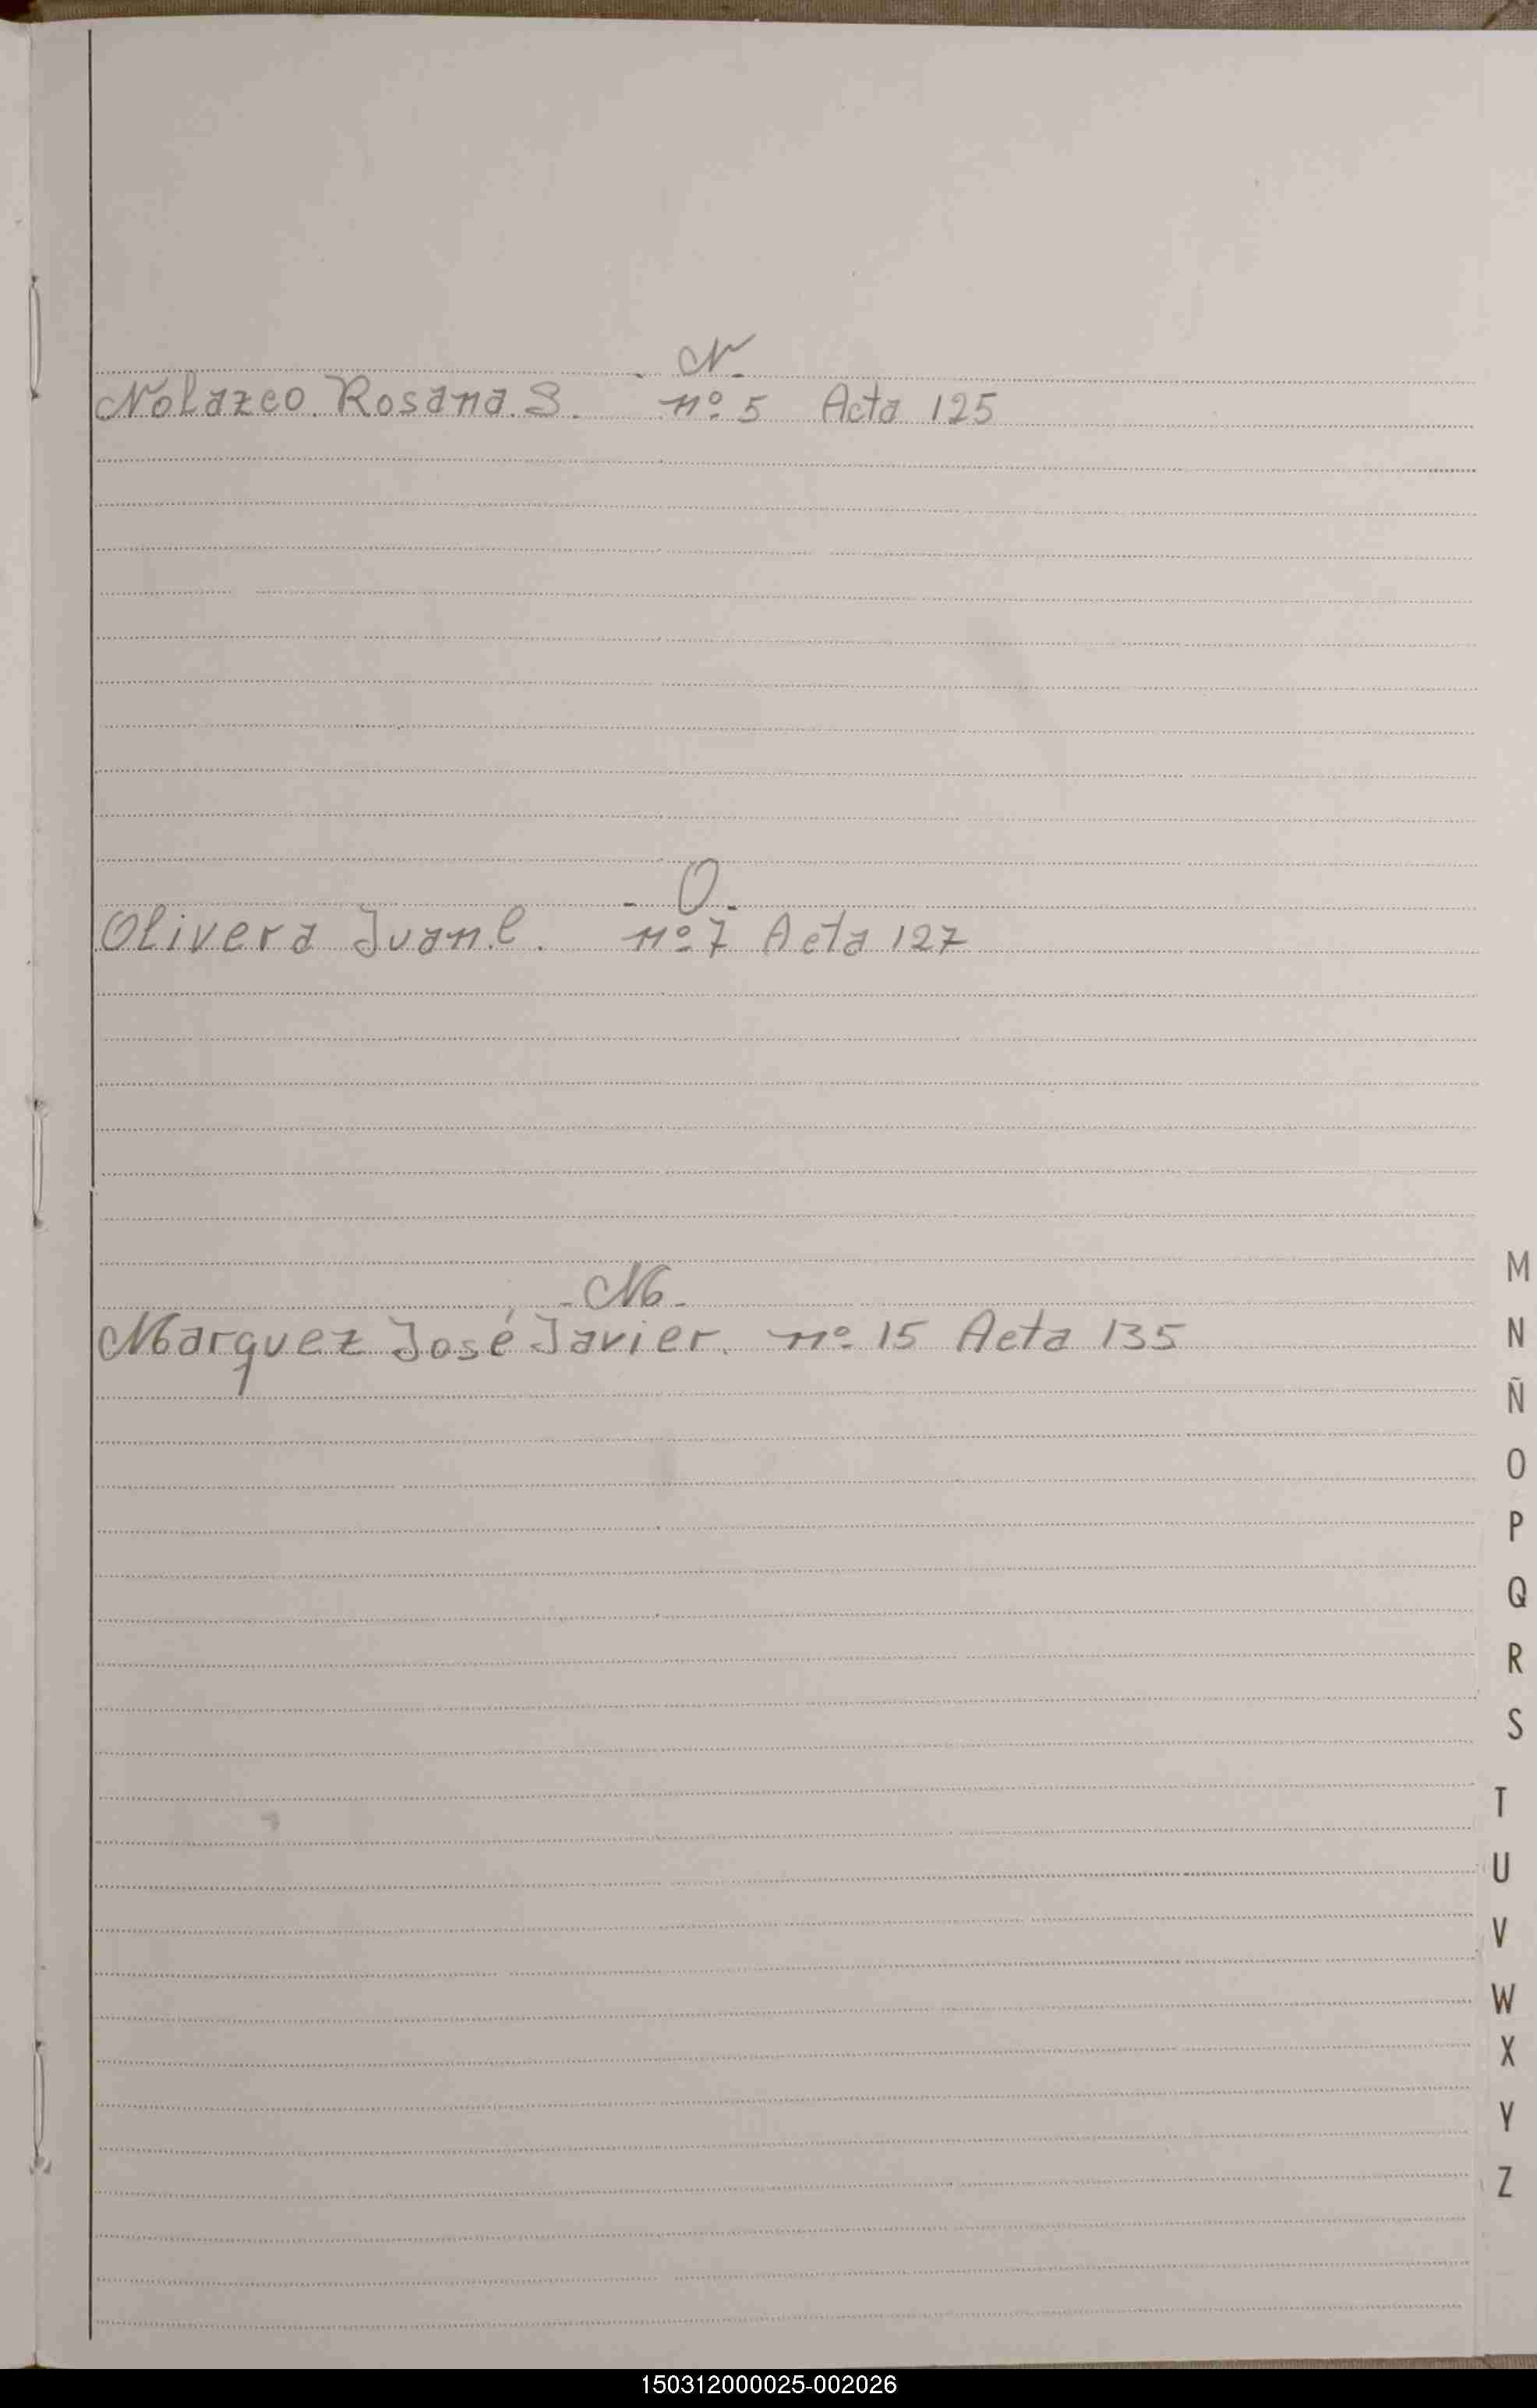 - N -
Nolazco Rosana S. nº 5 Acta 125
- O -
Olivera Juan C. nº 7 Acta 127
- M -
Marquez José Javier. nº 15 Acta 135
M
N
Ñ
O
P
Q
R
S
T
U
V
W
X
Y
Z
150312000025-002026